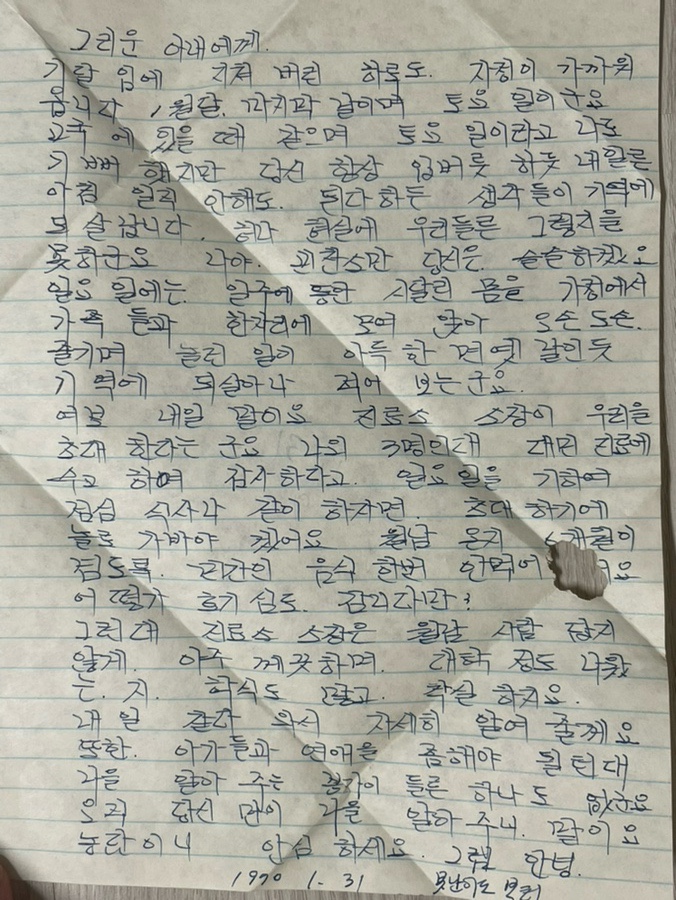 그리운 아내에게.
기람 임에 지처 버린 하루도. 자정이 가까워
옵니다 1월달. 마지막 날이며 토요 일이군요
고국 에 있을 때 같으며 토요 일이라고 나도
기뻐 해지만 당신 항상 입버릇 하듯 내일은
아침 일직 안해도. 된다 하는 생각 들이 기억에
되 살 납니다. 허나 현실에 우리들른 그렇치를
못하군요 나야. 괴찬소만 당신은. 쓸쓸하겠소
일요 일에는. 일주에 동안 시달린 몸을 가정에서
가족 들과 한자리에 모여 앉아 오손도손.
즐기며 놀던 일이 아득 한 먼 옛 날인 듯
기 억에 되살아나 적어 보는군요.
여보 내일 말이요 진료소 소장이 우리을
초대 한다는 군요 나의 3명인대 대민 진료에
수고 하며 감사하다고. 일요일을 기하여
점심 식사나 같이 하자면. 초대 하기에
놀로 가바야 겠어요 월남 온지 개월이
점도록. 민간인 음식 한번 안먹어 요
어 떨가 호기 심도. 감니다만?
그런대 진료소 소장은 월남 사람 답지
않게. 아주 깨끗하며. 대학 정도 나왔
는. 지. 학식도 많고. 착실 하지요.
내 일 갔다 와서 자세히 알여 줄께요
또한. 아가들과 연애을 좀해야 될 턴대
나을 알아 주는 들른 하나도 없군요
오직 당신 만이 나을 알아 주니. 말이요
농담이니 안심 하세요. 그럼 안녕.
1970 1. 31 못난이로 부터